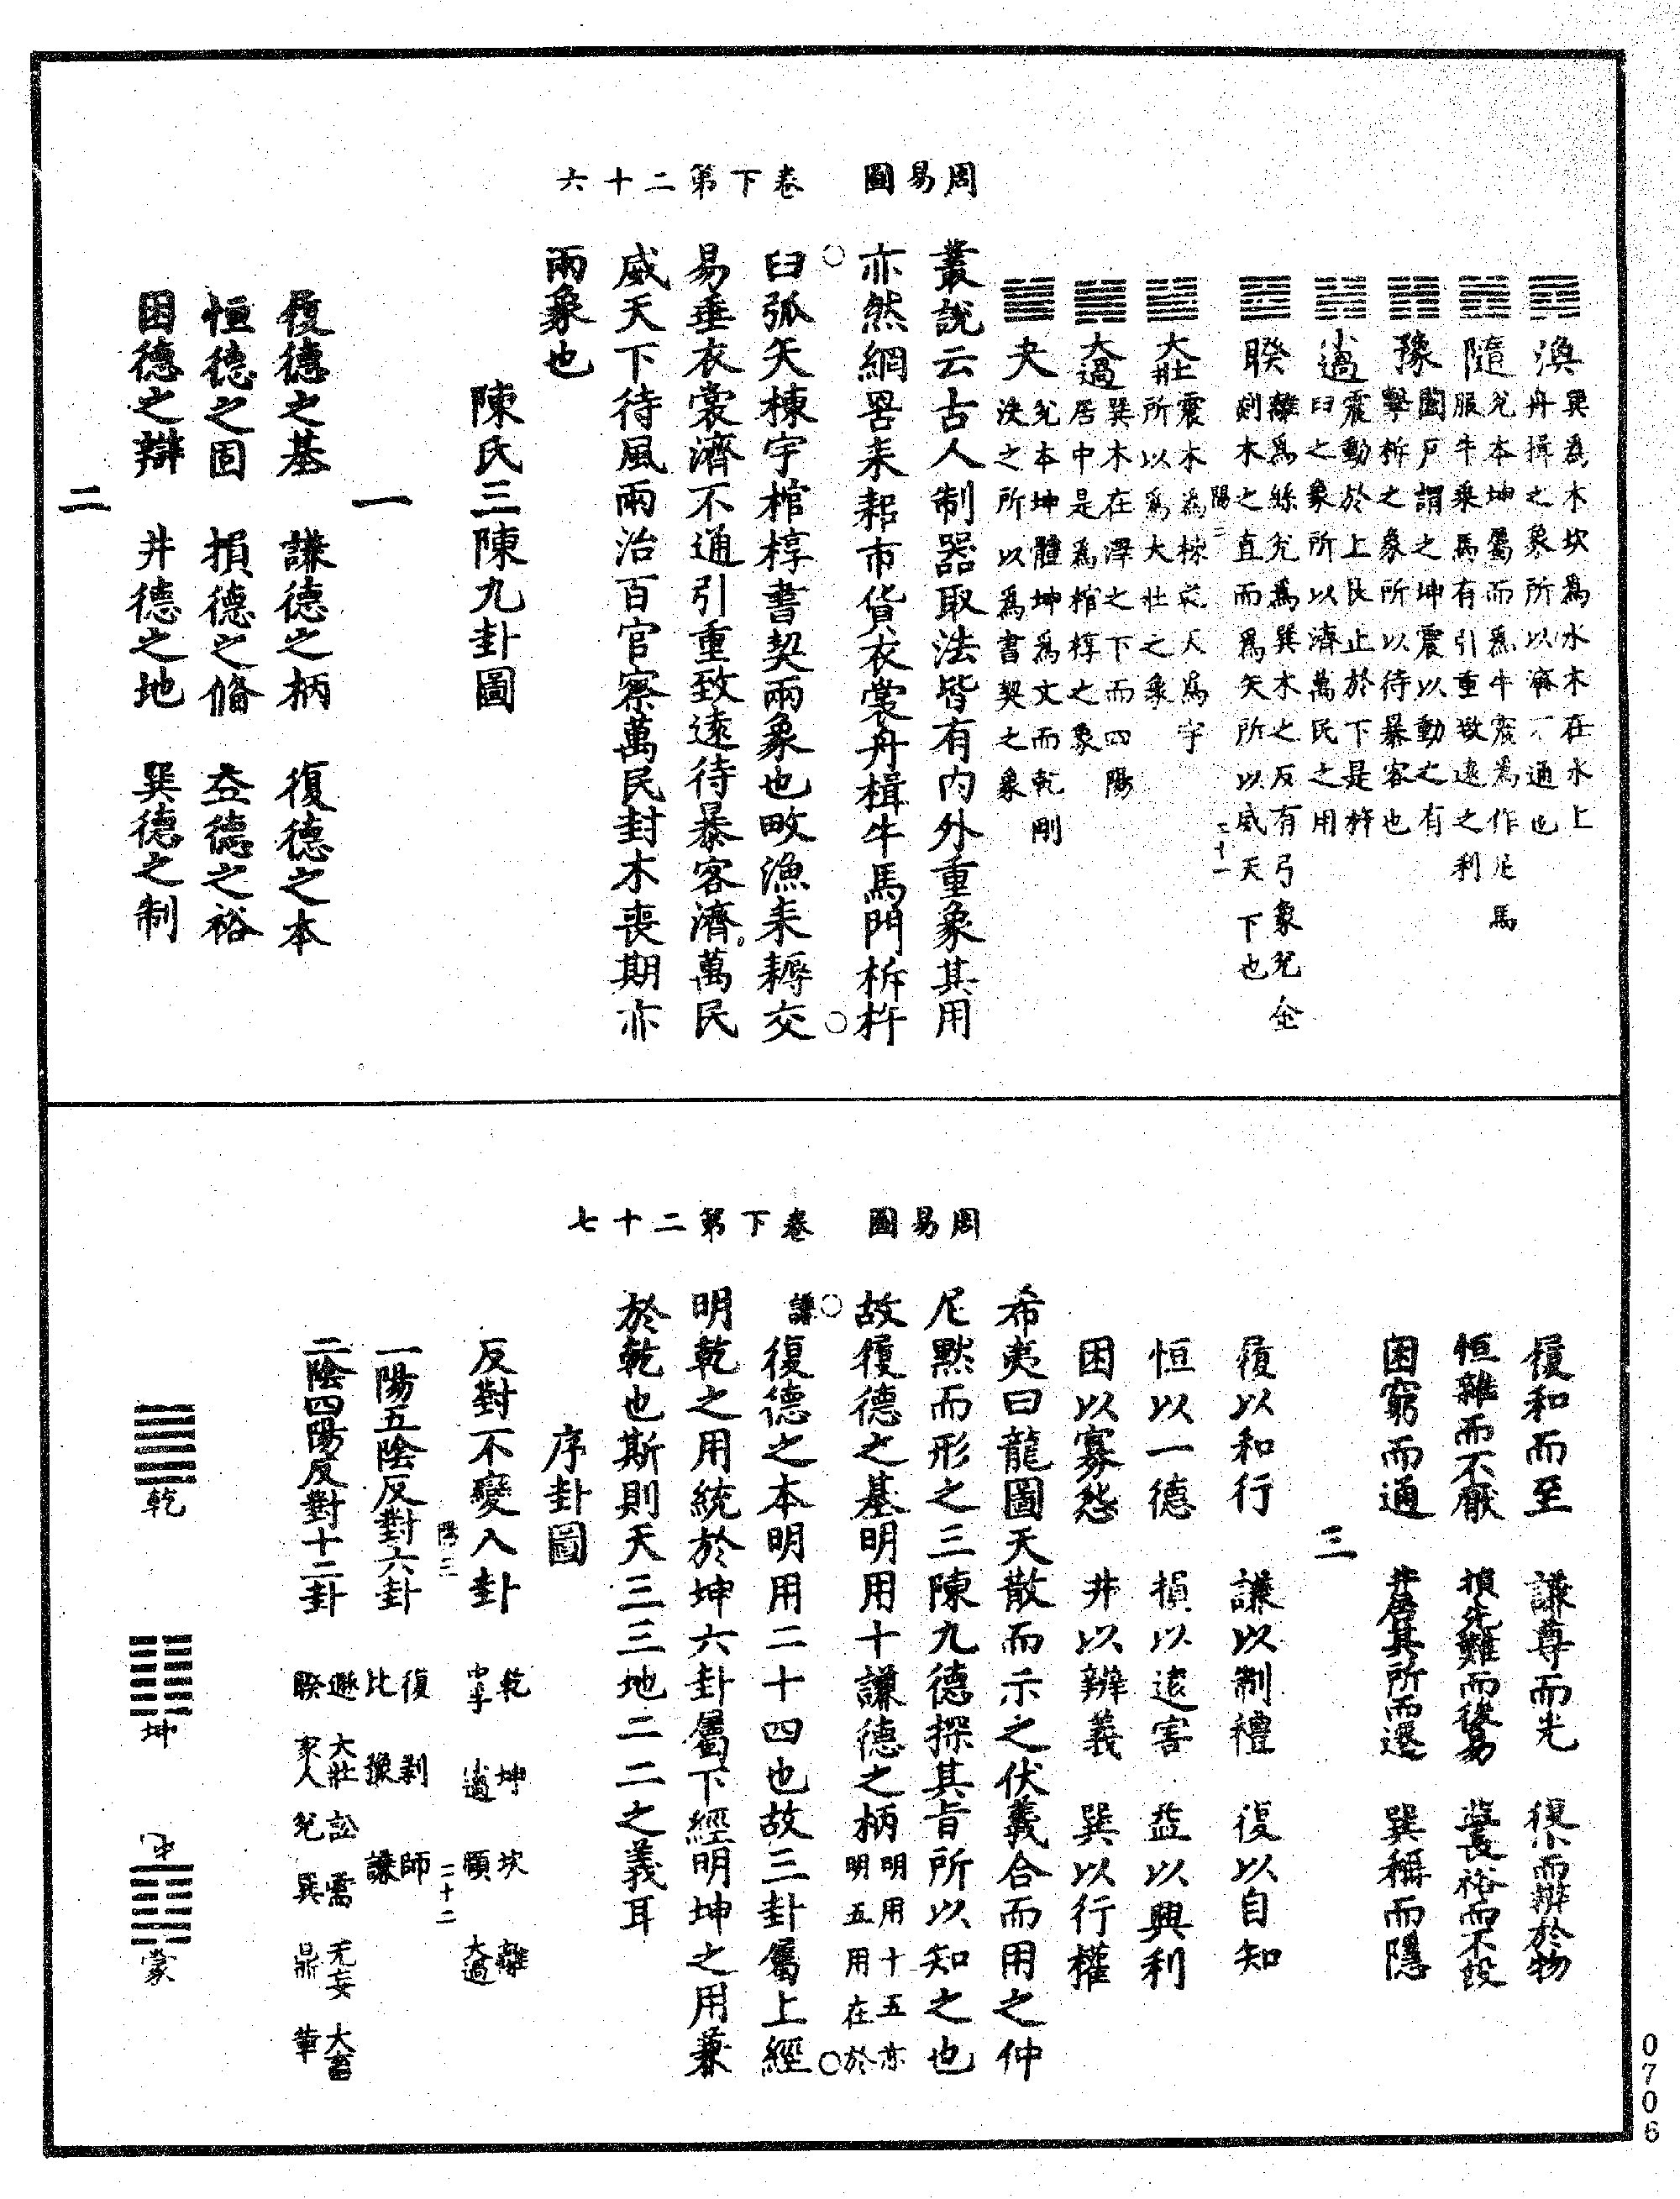 周易圖　卷下第二十六
渙　巽爲木坎爲水木在水上
舟揖之象所以濟不通也
隨　兌本坤屬而爲牛震爲作足馬
服牛乘馬有引重致遠之利
豫　闔戶謂之坤震以動之有
擊柝之象所以待暴客也
小過　震動於上艮止於下是杵
臼之象所以濟萬民之用
睽　離爲絲兌爲巽木之反有弓象兌金
剡木之直而爲矢所以威天下也
陽三　二十一
大壯　震木爲棟乾天爲宇
所以爲大壯之象
大過　巽木在澤之下而四陽
居中是爲棺椁之象
夬　兌本坤體坤爲文而乾剛
決之所以爲書契之象
叢說云古人制器取法皆有內外重象其用
亦然網罟耒耜市貨衣裳舟楫牛馬門柝杵
臼弧矢棟宇棺椁書契兩象也畋漁耒耨交
易垂衣裳濟不通引重致遠待暴客濟萬民
威天下待風雨治百官察萬民封木喪期亦
兩象也
陳氏三陳九卦圖
一
履德之基　謙德之柄　復德之本
恒德之固　損德之脩　益德之裕
困德之辯　井德之地　巽德之制
二
周易圖　卷下第二十七
履和而至　謙尊而光　復小而辨於物
恒雜而不厭　損先難而後易　益長裕而不設
困窮而通　井居其所而遷　巽稱而隱
三
履以和行　謙以制禮　復以自知
恒以一德　損以遠害　益以興利
困以寡怨　井以辨義　巽以行權
希夷曰龍圖天散而示之伏羲合而用之仲
尼默而形之三陳九德探其旨所以知之也
故履德之基明用十謙德之柄明用十五亦
明五用在於
謙　復德之本明用二十四也故三卦屬上經
明乾之用統於坤六卦屬下經明坤之用兼
於乾也斯則天三三地二二之義耳
序卦圖
反對不變八卦　乾　坤　坎　離
中孚　小過　頤　大過
陽三　二十二
一陽五陰反對六卦　復　剥　師
比　豫　謙
二陰四陽反對十二卦　遯　大壯　訟　需　无妄　大畜
睽　家人　兌　巽　鼎　革
乾　坤　屯　蒙
0706